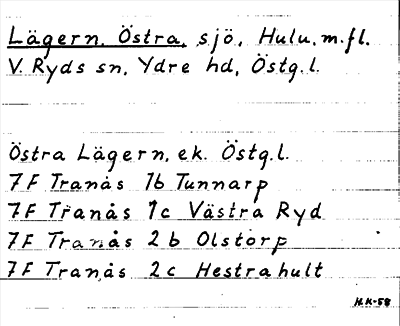 Lägern, Östra, sjö, Hulu, m.fl.
V. Ryds sn, Ydre hd, Östg.l.
Östra Lägern, ek. Östg.l.
7F Tranås 1b Tunnarp
7F Tranås 1c Västra Ryd
7F Tranås 2b Olstorp
7F Tranås 2c Hestrahult
H.K-58